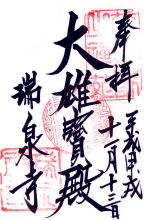 奉拜
平成甲戌
十一月十三日
大雄寶殿
瑞泉寺